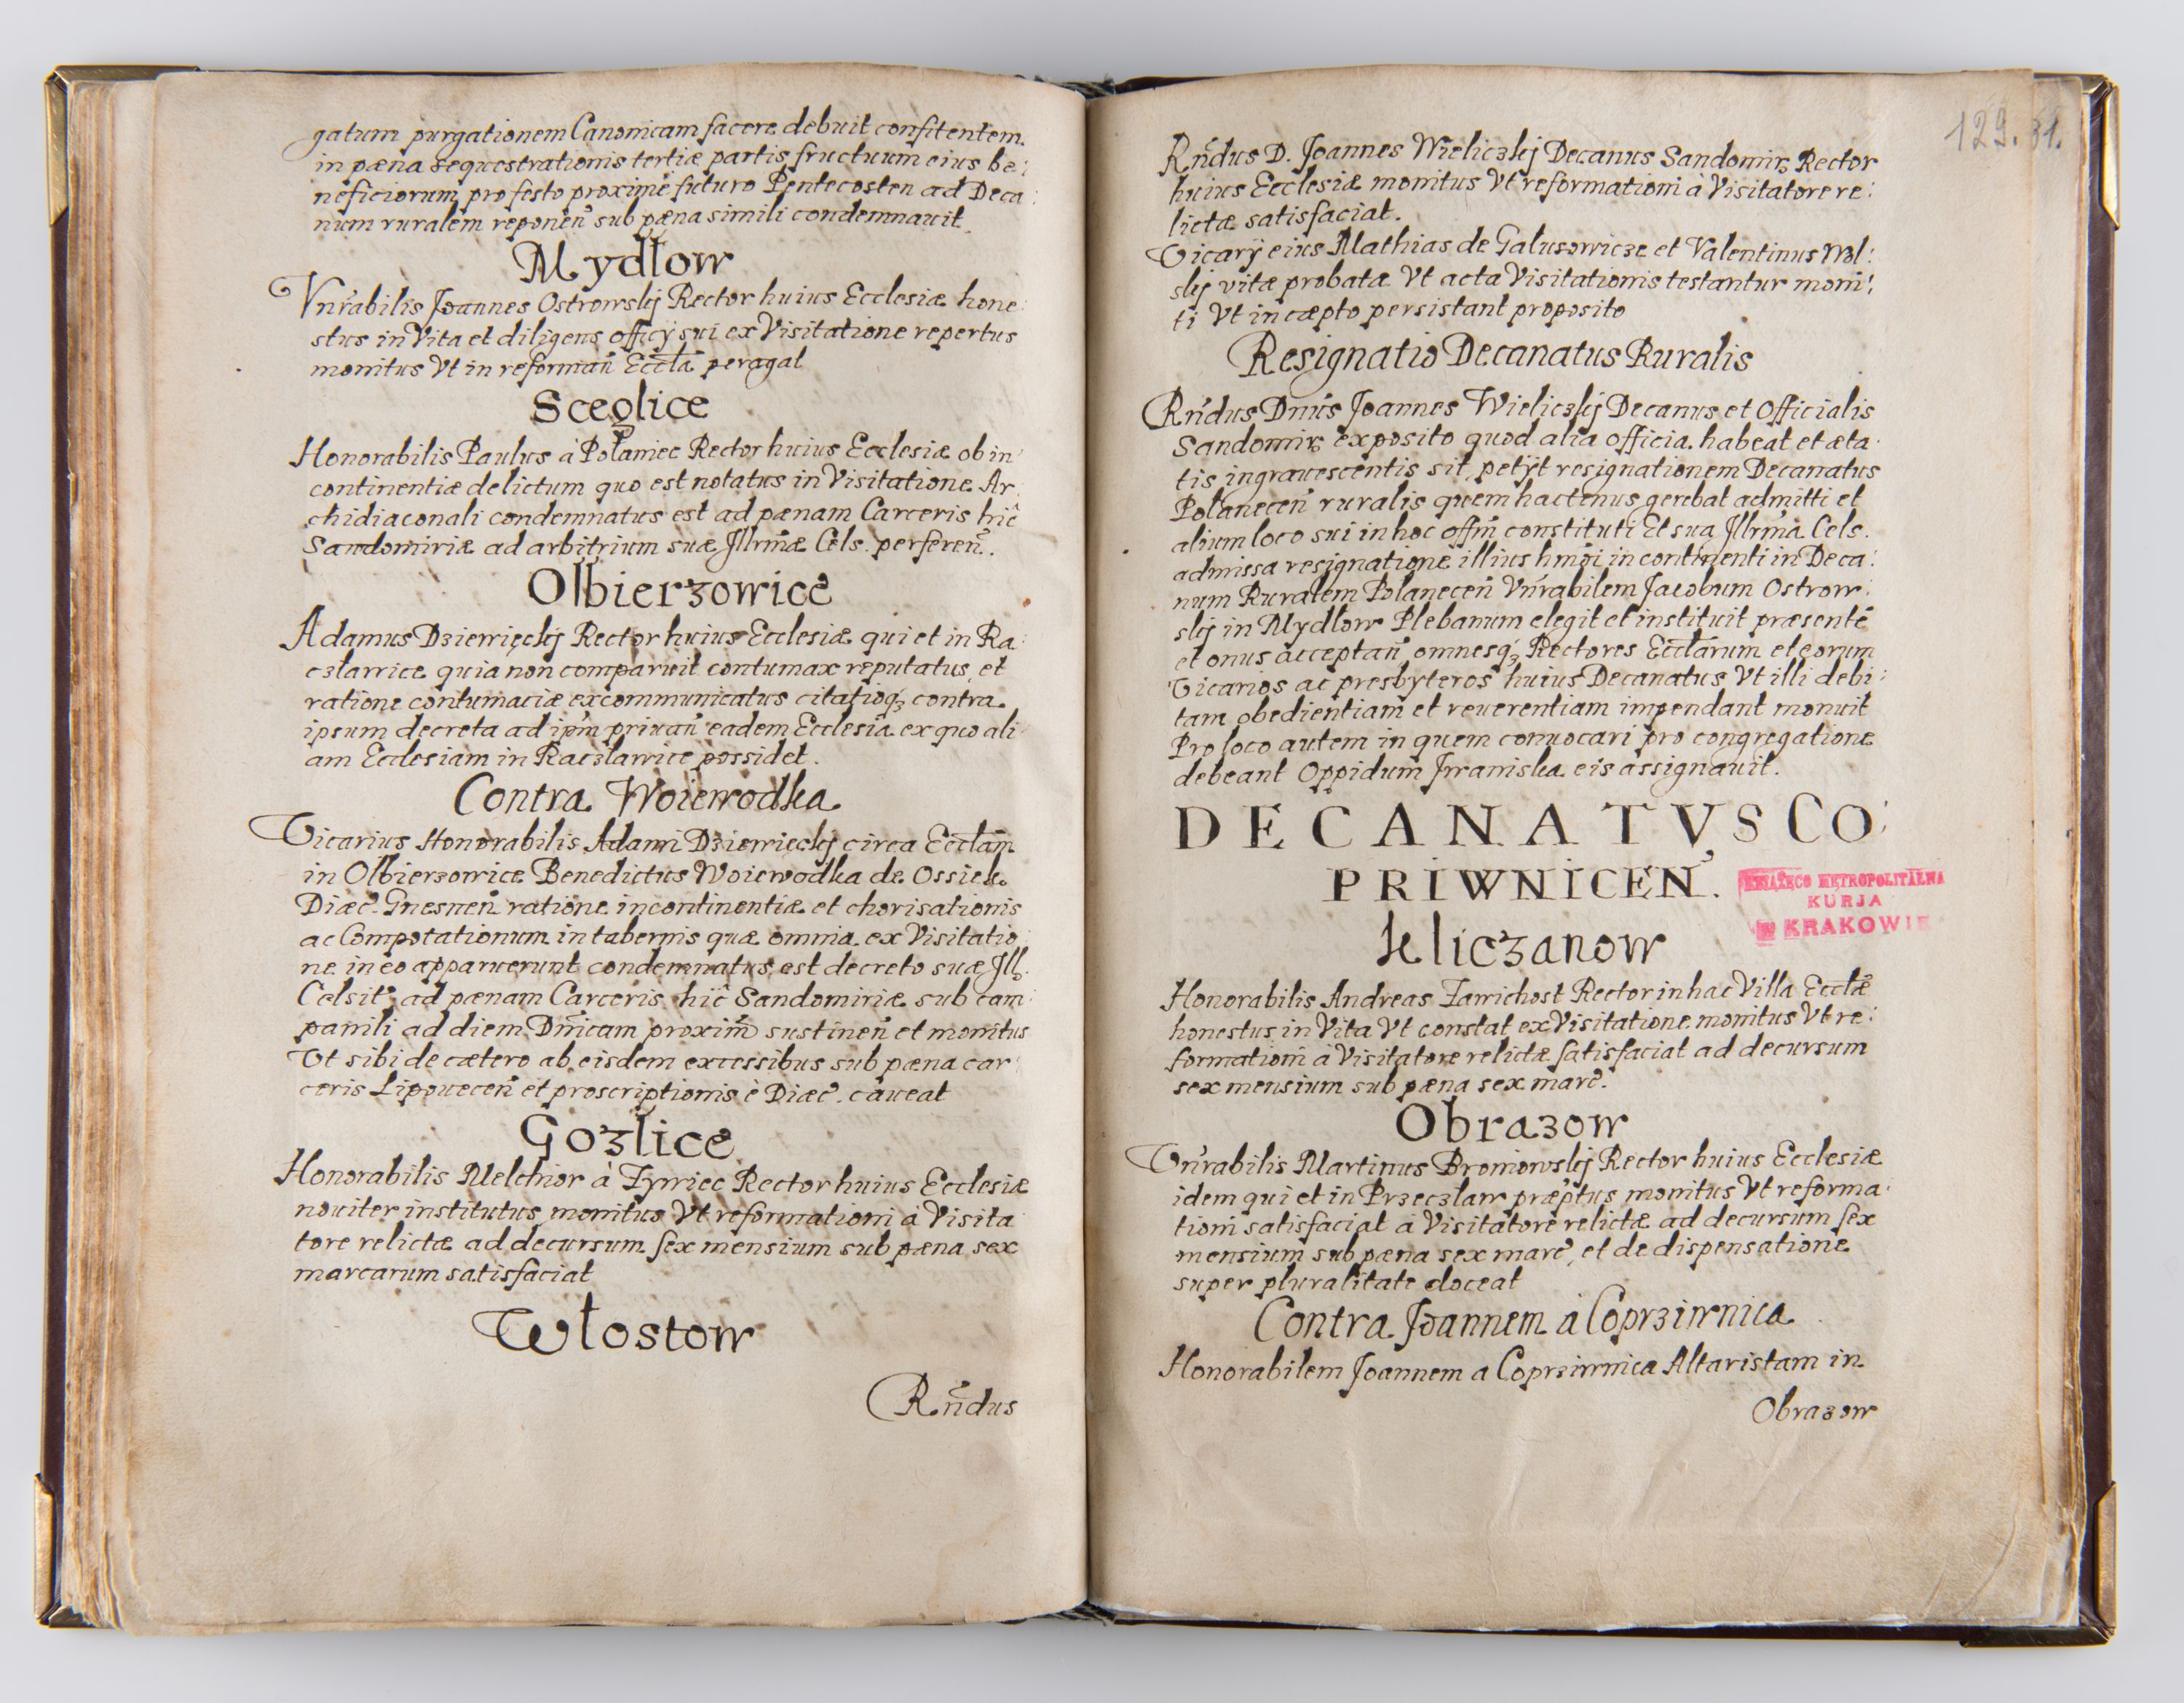 gatum purgationem Canonicam facere debuit confitentem
in pæna sequestrationis tertiæ partis fructuum eius be:
neficiorum pro festo proximé futuro Pentecosten ad Deca:
num ruralem reponeñ sub pæna simili condemnauit
Mydłow
Vnrabilis Joannes Ostrowskij Rector huius Ecclesiæ hone:
stus in Vita et diligens officÿ sui ex Visitatione repertus
monitus Vt in reformañ Eccła peragat
Sceglice
Honorabilis Paulus à Połaniec Rector huius Ecclesiæ ob in:
continentiæ delictum quo est notatus in Visitatione Ar:
chidiaconali condemnatus est ad pænam Carceris hic
Sandomiriæ ad arbitrium suæ Jllrmæ Cels. perfereñ.
Olbierzowice
Adamus Dziewięckij Rector huius Ecclesiæ qui et in Ra:
czławice quia non comparuit contumax reputatus et
ratione contumaciæ excommunicatus citatioq3 contra
ipsum decreta ad ipm priuañ eadem Ecclesia ex quo ali:
am Ecclesiam in Raczławice possidet.
Contra Woiewodka
Vicarius Honorabilis Adami Dziewięckij circa Ecctam
in Olbierzowice Benedictus Woiewodka de Ossiek
Diæc. Gnesneñ ratione incontinentiæ et chorisationis
ac Compotationum in tabernis quæ omnia ex Visitatio:
ne in eo apparuerunt condemnatus est decreto suæ Jll.
Celsit. ad pænam Carceris hic Sandomiriæ sub cam:
panili ad diem Dnicam proxim sustineñ et monitus
Vt sibi de cætero ab eisdem excessibus sub pæna car:
ceris Lipoueceñ et proscriptionis è Diæc. caueat
Gozlice
Honorabilis Melchior à Zywiec Rector huius Ecclesiæ
nouiter institutus monitus Vt reformationi à Visita:
tore relictæ ad decursum sex mensium sub pæna sex
marcarum satisfaciat
Włostow
Rñdus
129. 31.
Rñdus D. Joannes Wieliczkij Decanus Sandomir. Rector
huius Ecclesiæ monitus Vt reformationi à Visitatore re:
lictæ satisfaciat.
Vicarÿ eius Mathias de Gałusowicze et Valentinus Wol:
skij vitæ probatæ Vt acta Visitationis testantur moni:
ti Vt in cæpto persistant proposito
Resignatio Decanatus Ruralis
Rñdus Dnus Joannes Wieliczkij Decanus et Officialis
Sandomir. exposito quod alia officia habeat et æta:
tis ingrauescentis sit petÿt resignationem Decanatus
Połaneceñ ruralis quem hactenus gerebat admitti et
alium loco sui in hoc offm constituti Et sua Jllrma Cels.
admissa resignatione illius hmoi in continenti in Deca:
num Ruralem Polaneceñ Vnrabilem Jacobum Ostrow:
skij in Mydłow Plebanum elegit et instituit præsente
et onus acceptañ omnesq3 Rectores Ecctarum et eorum
Vicarios ac presbyteros huius Decanatus Vt illi debi:
tam obedientiam et reuerentiam impendant monuit
Pro loco autem in quem conuocari pro congregatione
debeant Oppidum Jwaniska eis assignauit.
DECANATVS CO:
PRIWNICEN.
KSIĄŻĘCO METROPOLITALNA
KURJA
W KRAKOWIE
Kliczanow
Honorabilis Andreas Zawichost Rector in hac Villa Ecctæ
honestus in Vita Vt constat ex Visitatione monitus Vt re:
formationi à Visitatore relictæ satisfaciat ad decursum
sex mensium sub pæna sex marc.
Obrazow
Vnrabilis Martinus Broniowskij Rector huius Ecclesiæ
idem qui et in Przeczław præptus monitus Vt reforma:
tioni satisfaciat à Visitatore relictæ ad decursum sex
mensium sub pæna sex marc. et de dispensatione
super pluralitate doceat
Contra Joannem à Coprziwnica
Honorabilem Joannem a Coprziwnica Altaristam in
Obrazow